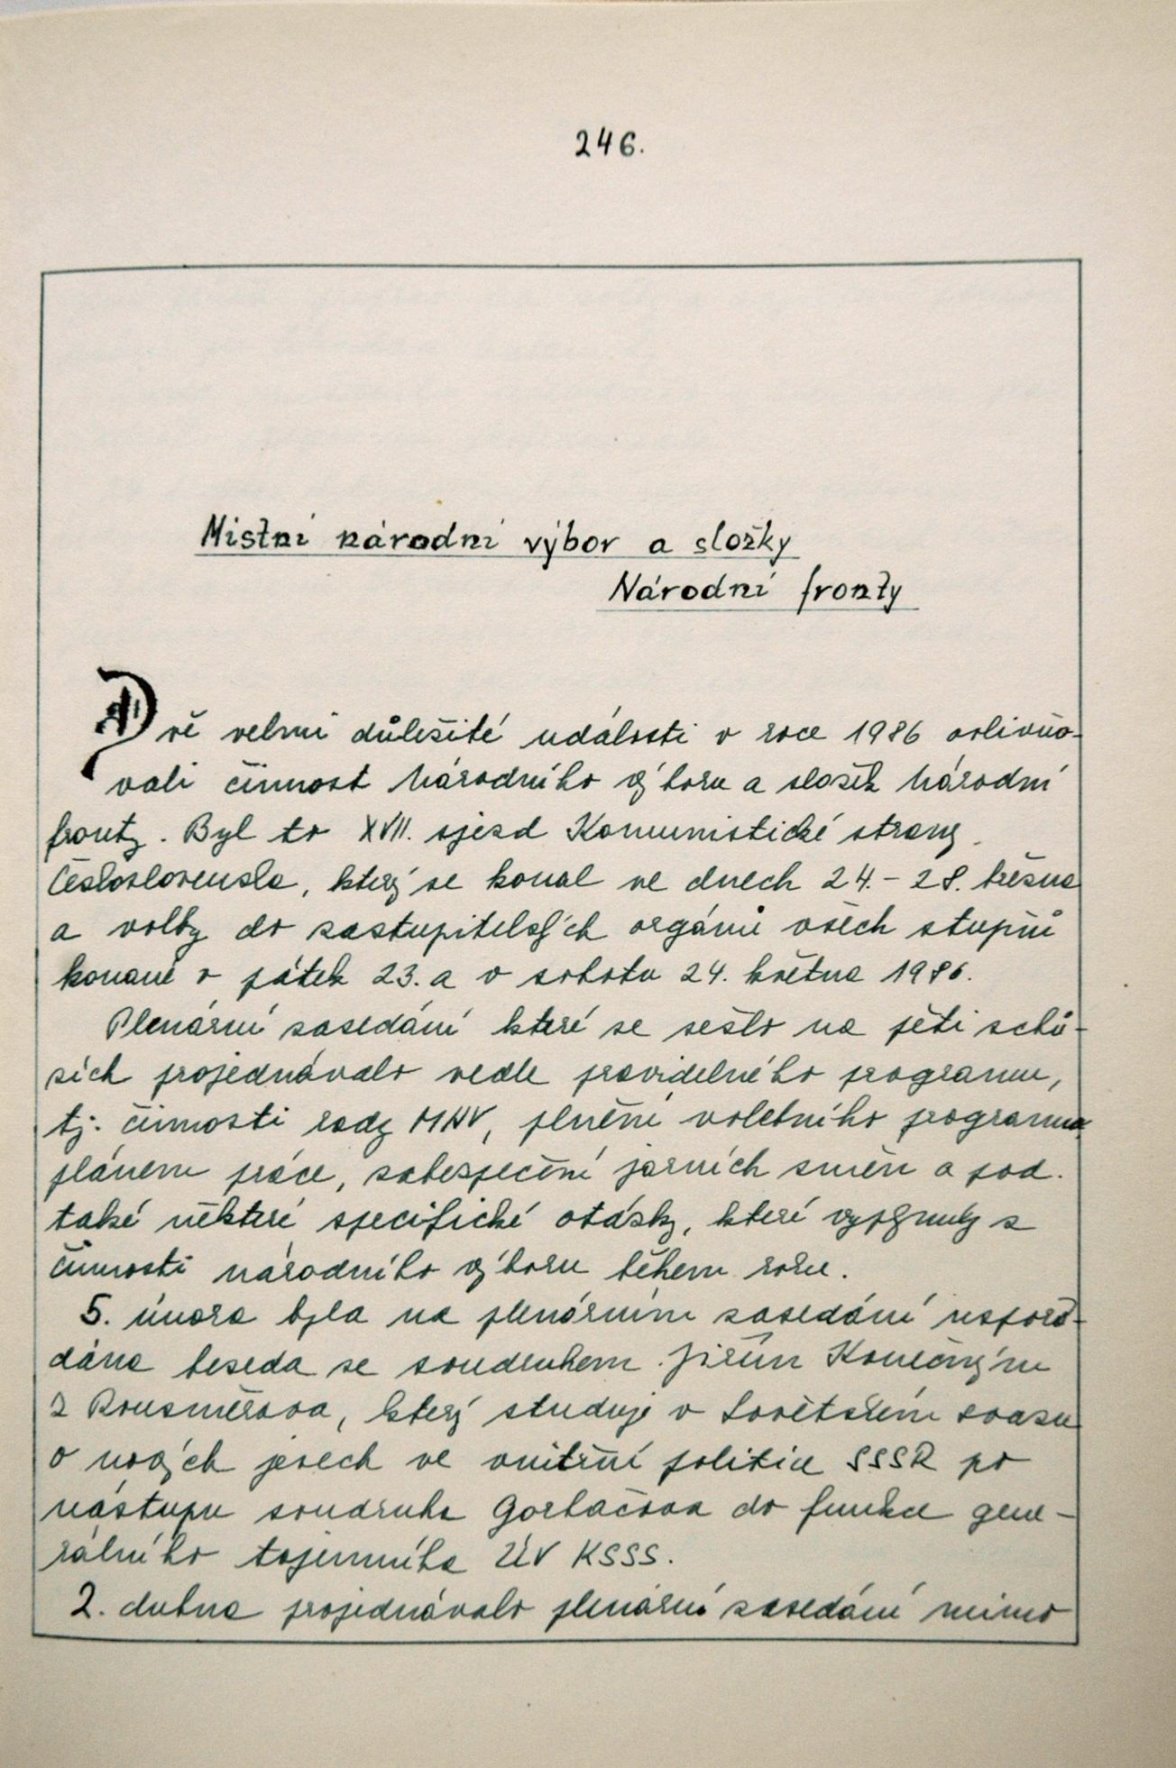 246.
Místní národní výbor a složky
Národní fronty
Dvě velmi důležité události v roce 1986 ovlivňo-
vali činnost Národního výboru a složek Národní
fronty. Byl to XVII. sjezd Komunistické strany
Československa, který se konal ve dnech 24. - 28. března
a volby do zastupitelských orgánů všech stupňů
konané v pátek 23. a v sobotu 24. května 1986.
Plenární zasedání které se sešlo na pěti schů-
zích projednávalo vedle pravidelného programu,
tj. činnosti rady MNV, plnění volebního programu
plánem práce, zabezpečení jarních směn a pod.
také některé specifické otázky, které vyplynuly z
činnosti národního výboru během roku.
5. února byla na plenárním zasedání uspořá-
dána beseda se soudruhem Jiřím Konečným
z Rousměrova, který studuje v Sovětském svazu
o nových jevech ve vnitřní politice SSSR po
nástupu soudruha Gorbačova do funkce gene-
rálního tajemníka ÚV KSSS.
2. dubna projednávalo plenární zasedání mimo